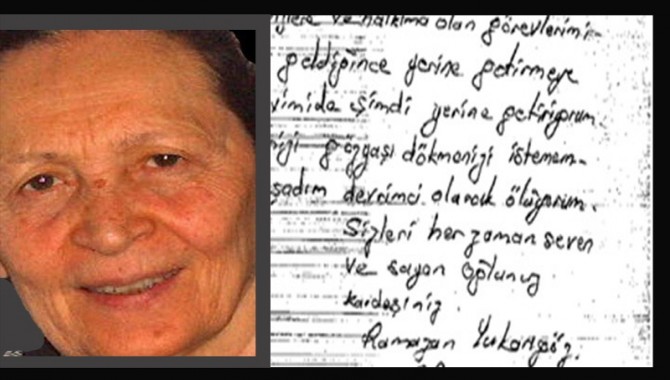 ve halkıma olan görevlerimi-
geldiğince yerine getirmeye
şimdi yerine getiriyorum.
gözyaşı dökmenizi istemem.
devrimci olarak ölüyorum.
Sizleri her zaman seven
ve sayan oğlunuz
kardeşiniz.
Ramazan Yukarıgöz.